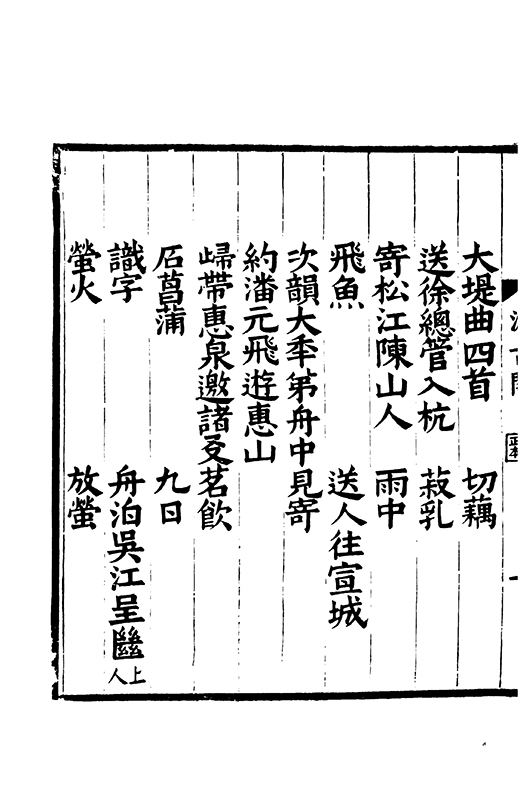 大堤曲四首　切藕
送徐總管入杭　菽乳
寄松江陳山人　雨中
飛魚　送人往宣城
次韻大季第舟中見寄
約潘元飛遊惠山
歸帶惠泉邀諸友茗飲
石菖蒲　九日
識字　舟泊吳江呈豳上人
螢火　放螢